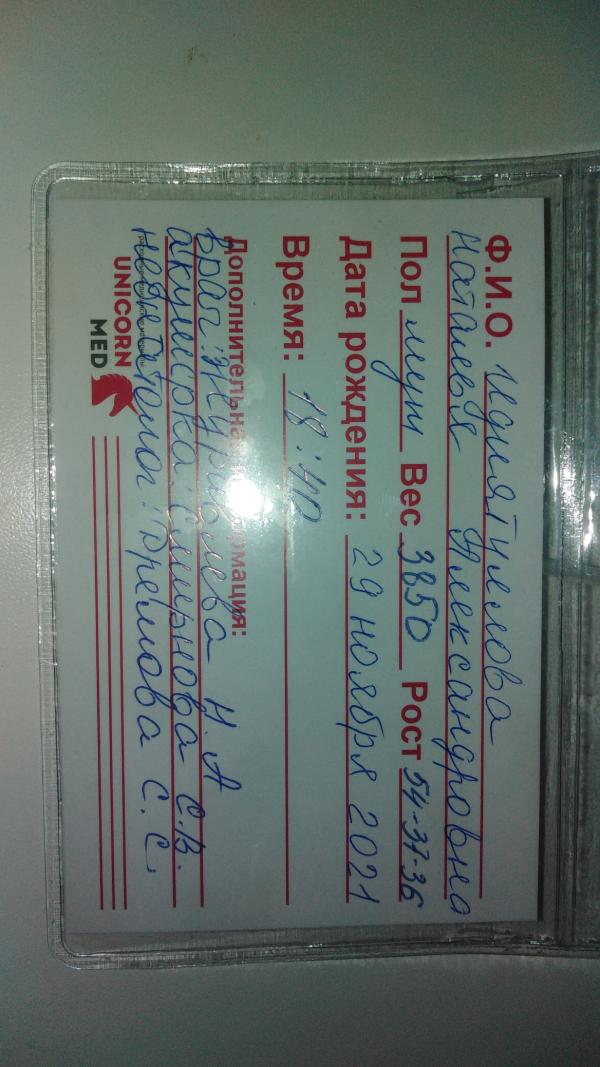 Ф.И.О. Идиятуллова
Наталья Александровна
Пол муж Вес 3850 Рост 54-37-36
Дата рождения: 29 ноября 2021
Время: 18:40
Дополнительная информация:
Врач: Журавлева Н.А
акушерка: Смирнова С.В.
неонатолог: Дремова С.С.
UNICORN
MED